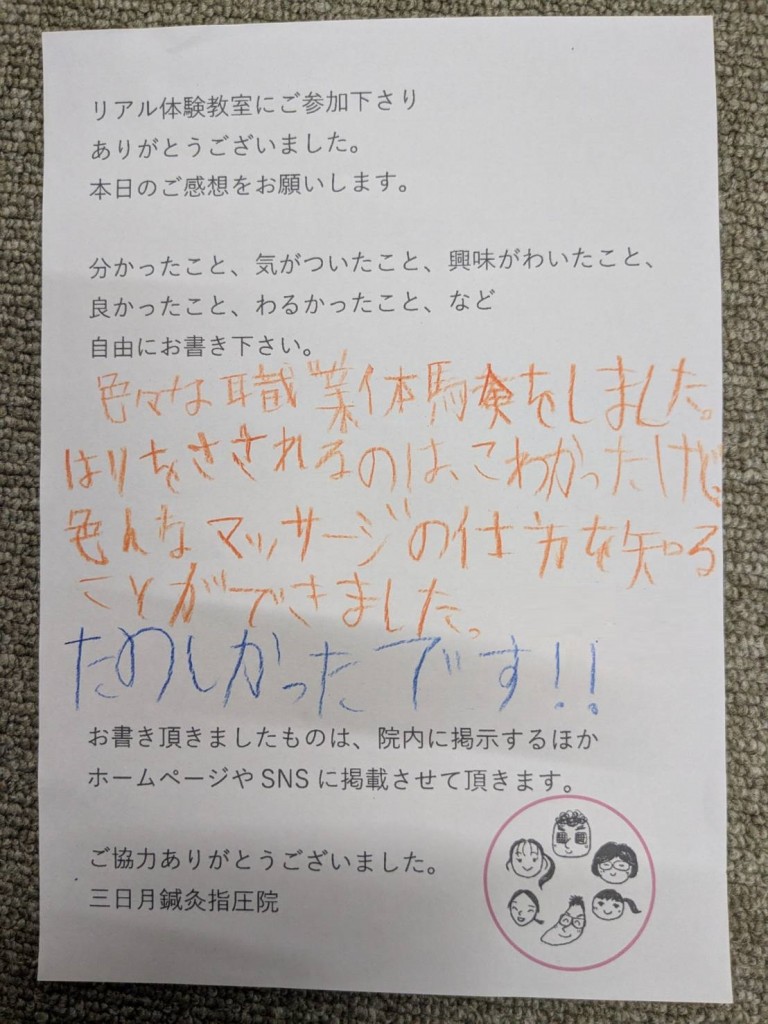 リアル体験教室にご参加下さり
ありがとうございました。
本日のご感想をお願いします。
分かったこと、気がついたこと、興味がわいたこと、
良かったこと、わるかったこと、など
自由にお書き下さい。
色々な職業体験をしました。
はりをさされるのは、こわかったけど、
色んなマッサージの仕方を知る
ことができました。
たのしかったです!!
お書き頂きましたものは、院内に掲示するほか
ホームページや SNS に掲載させて頂きます。
ご協力ありがとうございました。
三日月鍼灸指圧院